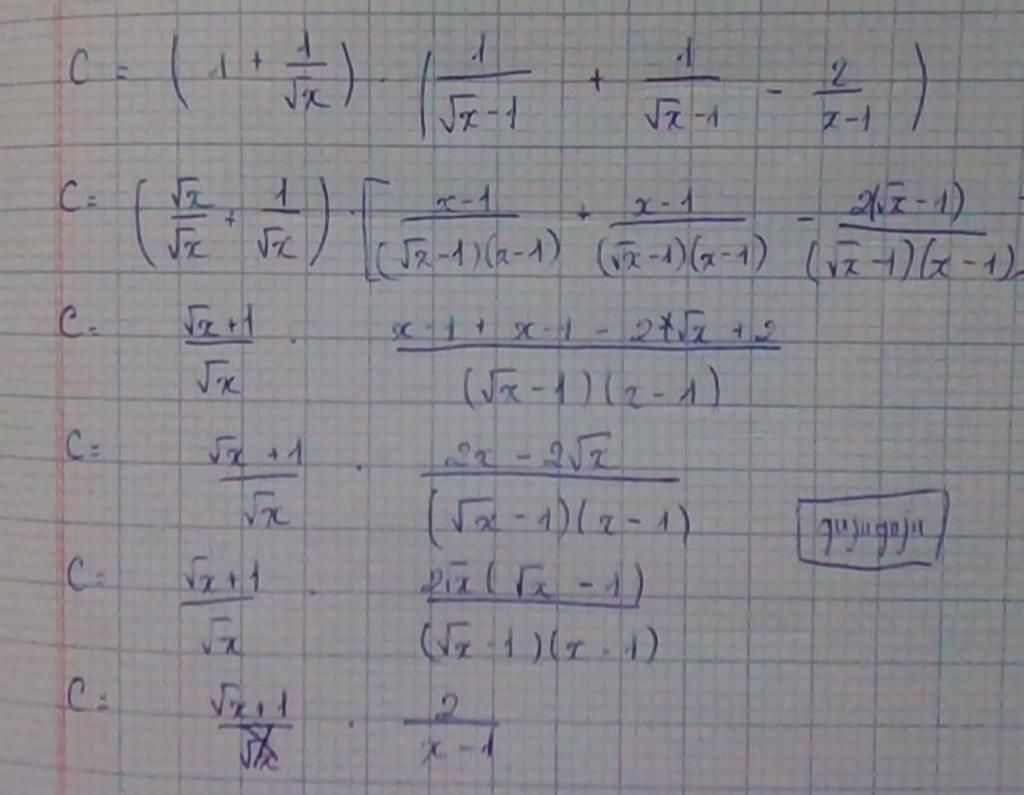 C = ( 1 + 1/√x ) · ( 1/(√x - 1) + 1/(√x - 1) - 2/(x - 1) )
C = ( √x/√x + 1/√x ) · [ (x - 1)/((√x - 1)(x - 1)) + (x - 1)/((√x - 1)(x - 1)) - 2(√x - 1)/((√x - 1)(x - 1))
C = (√x + 1)/√x · (x - 1 + x - 1 - 2√x + 2)/((√x - 1)(x - 1))
C = (√x + 1)/√x · (2x - 2√x)/((√x - 1)(x - 1))
C = (√x + 1)/√x · 2√x(√x - 1)/((√x - 1)(x - 1))
C = (√x + 1)/√x · 2/(x - 1)